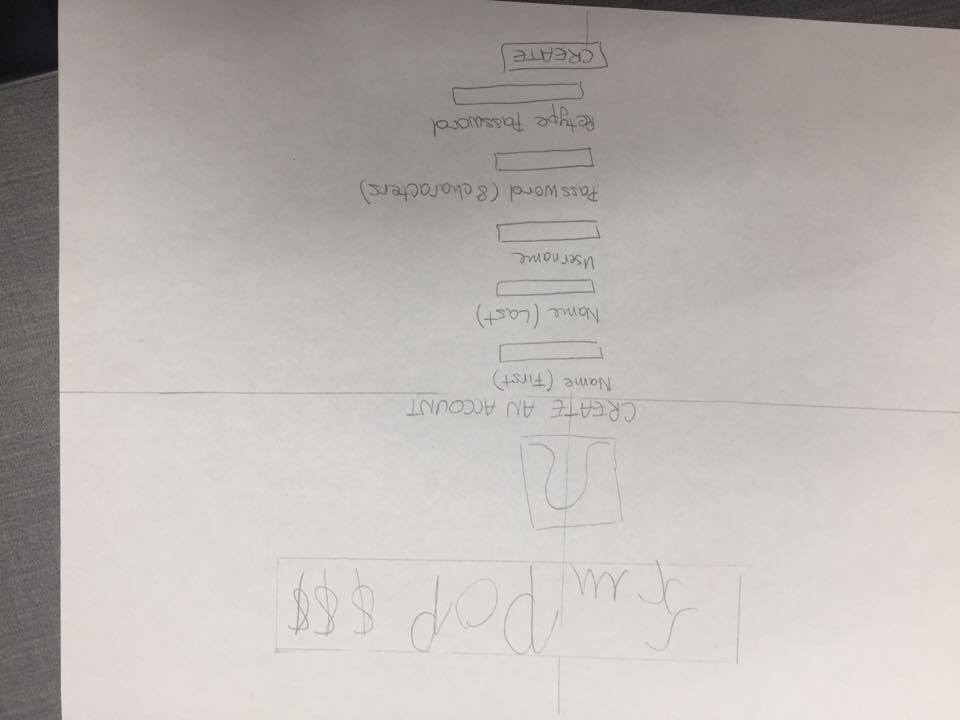 POP $$$
CREATE AN ACCOUNT
Name (First)
Name (Last)
Username
Password (8 characters)
Retype Password
CREATE